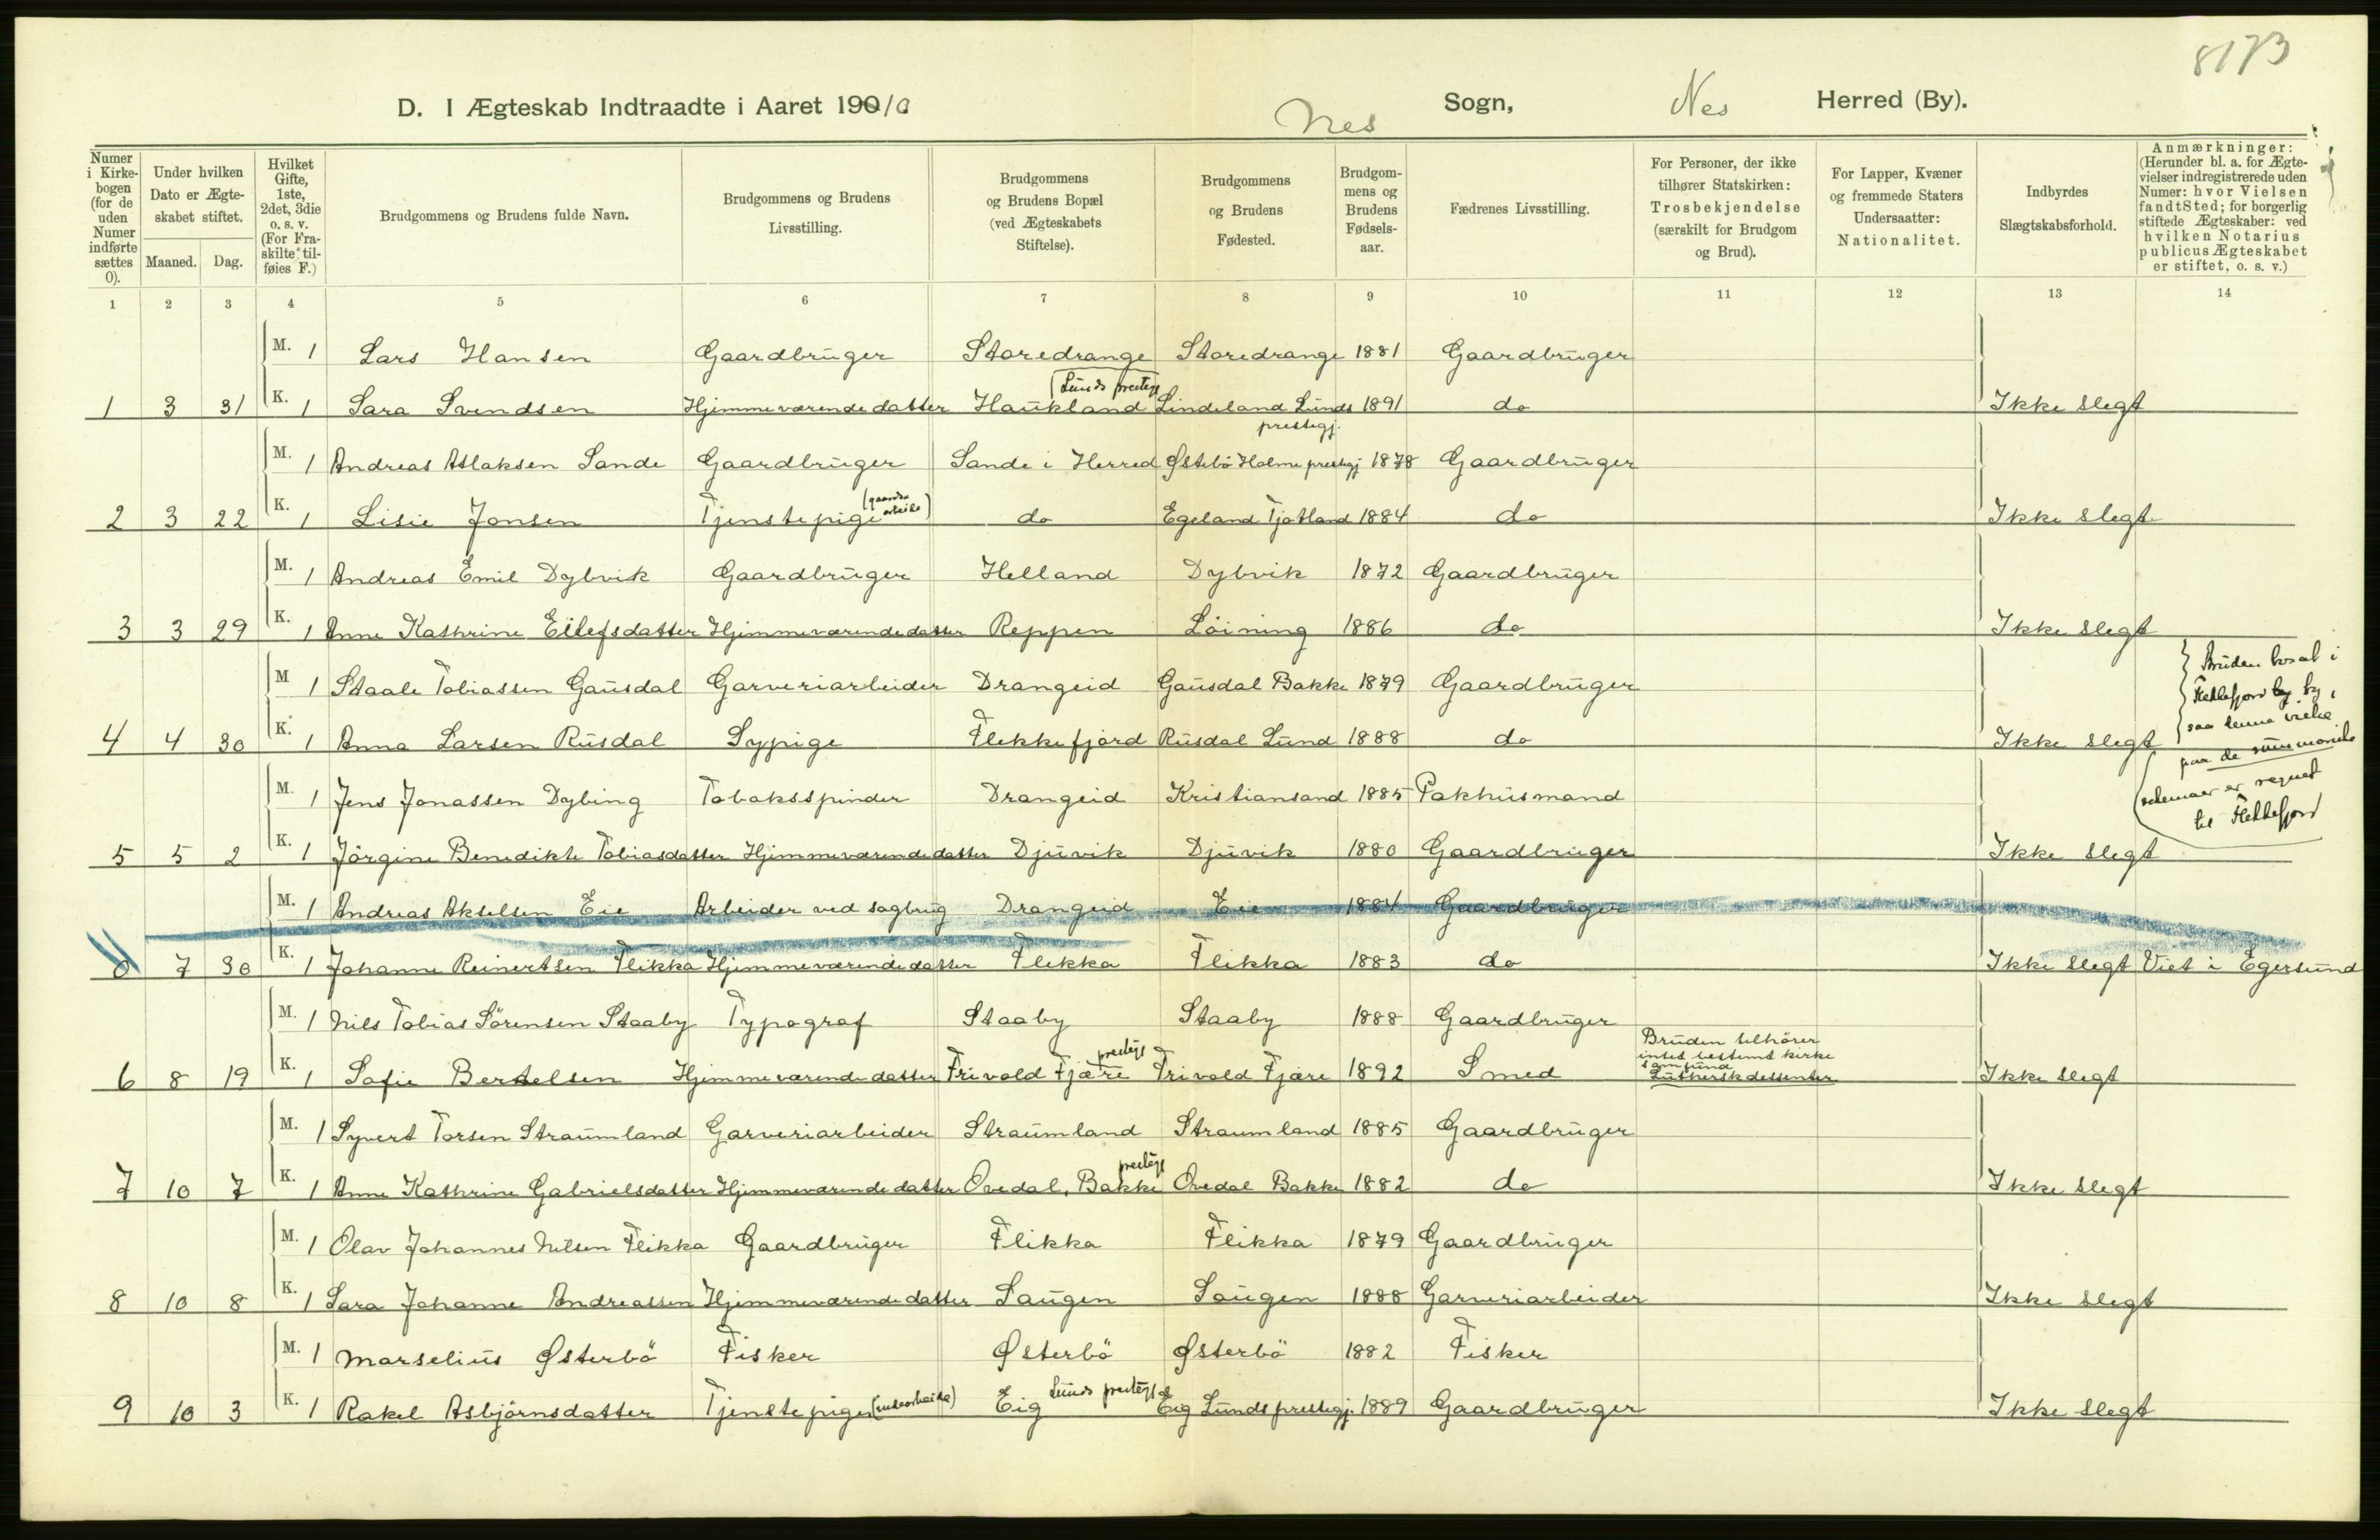 8173
D. I Ægteskab Indtraadte i Aaret 1910 Nes Sogn, Nes Herred (By).
Numer i Kirkebogen (for de uden Numer indførte sættes 0).
Under hvilken Dato er Ægteskabet stiftet.
Maaned. Dag.
Hvilket Gifte, 1ste, 2det, 3die o. s. v. (For Fraskilte tilføies F.)
Brudgommens og Brudens fulde Navn.
Brudgommens og Brudens Livsstilling.
Brudgommens og Brudens Bopæl (ved Ægteskabets Stiftelse).
Brudgommens og Brudens Fødested.
Brudgommens og Brudens Fødselsaar.
Fædrenes Livsstilling.
For Personer, der ikke tilhører Statskirken: Trosbekjendelse (særskilt for Brudgom og Brud).
For Lapper, Kvæner og fremmede Staters Undersaatter: Nationalitet.
Indbyrdes Slægtskabsforhold.
Anmærkninger: (Herunder bl. a. for Ægtevielser indregistrerede uden Numer: hvor Vielsen fandt Sted; for borgerlig stiftede Ægteskaber: ved hvilken Notarius publicus Ægteskabet er stiftet, o. s. v.)
1 2 3 4 5 6 7 8 9 10 11 12 13 14
M. 1 Lars Hansen Gaardbruger Storedrange Storedrange 1881 Gaardbruger
1 3 31 K. 1 Sara Svendsen Hjemmeværende datter Haukland (Lunds prestegj Lindeland Lunds prestegj. 1891 do Ikke slegt
M. 1 Andreas Atlaksen Sande Gaardbruger Sande i Herred Østebö Holme prestegj 1878 Gaardbruger
2 3 22 K. 1 Lisie Jonsen Tjenstepige (gaardsarbeide) do Egeland Tjotland 1884 do Ikke slegt
M. 1 Andreas Emil Dybvik Gaardbruger Helland Dybvik 1872 Gaardbruger
3 3 29 K. 1 Anne Kathrine Eilefsdatter Hjemmeværende datter Reppen Löining 1886 do Ikke slegt
M 1 Staale Tobiassen Gausdal Garveriarbeider Drangeid Gausdal Bakke 1879 Gaardbruger
4 4 30 K. 1 Anna Larsen Rusdal Sypige Flekkefjord Rusdal Lund 1888 do Ikke slegt
Bruden bosat i
Flekkefjord by,
saa denne vielse
paa de summariske
schemaer er regnet
til Flekkefjord
M. 1 Jens Jonassen Dybing Tobaksspinder Drangeid Kristiansand 1885 Pakhusmand
5 5 2 K. 1 Jörgine Benedikte Tobiasdatter Hjemmeværende datter Djuvik Djuvik 1880 Gaardbruger Ikke slegt
M. 1 Andreas Akselsen Eie Arbeider ved sagbrug Drangeid Eie 1884 Gaardbruger
0 7 30 K. 1 Johanne Reinertsen Flikka Hjemmeværende datter Flekka Flikka 1883 do Ikke slegt Viet i Egersund
M. 1 Nils Tobias Sörensen Staaby Typograf Staaby Staaby 1888 Gaardbruger
6 8 19 K. 1 Sofie Bertelsen Hjemmeværende datter Frivold Fjære prestegj Frivold Fjære 1892 Smed Bruden tilhörer intet bestemt kirke samfund Lutherskdessenter Ikke slegt
M. 1 Syvert Torsen Straumland Garveriarbeider Straumland Straumland 1885 Gaardbruger
7 10 7 K. 1 Anne Kathrine Gabrielsdatter Hjemmeværende datter Ovedal, Bakke prestegj Ovedal Bakke 1882 do Ikke slegt
M. 1 Olav Johannes Nilsen Flikka Gaardbruger Flikka Flikka 1879 Gaardbruger
8 10 8 K. 1 Sara Johanne Andreassen Hjemmeværende datter Laugen Laugen 1888 Garveriarbeider Ikke slegt
M. 1 Marselius Østerbö Fisker Østerbö Østerbö 1882 Fisker
9 10 3 K. 1 Rakel Asbjörnsdatter Tjenstepige Eig Lunds prestegj Eig Lunds prestegj. 1889 Gaardbruger Ikke slegt